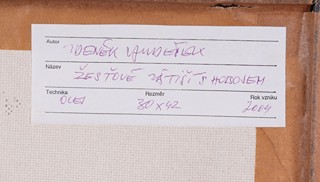 Autor ZDENĚK
Název ŽESŤOVÉ ZÁTIŠÍ S HOBOJEM
Technika Rozměr Rok vzniku
OLEJ 80 x 42 2004